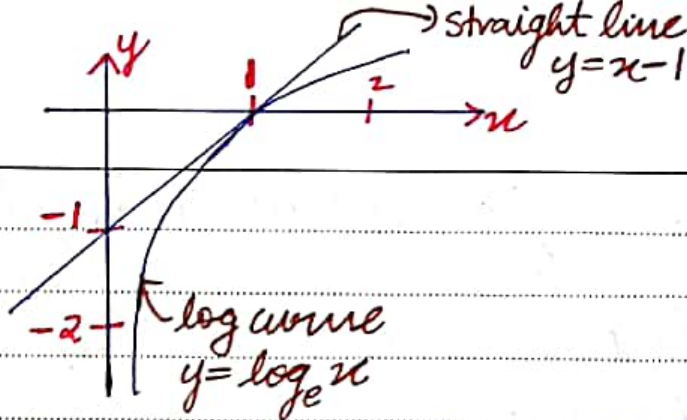 straight line
y=x-1
y
1
2
x
-1
-2
log curve
y=logₑx